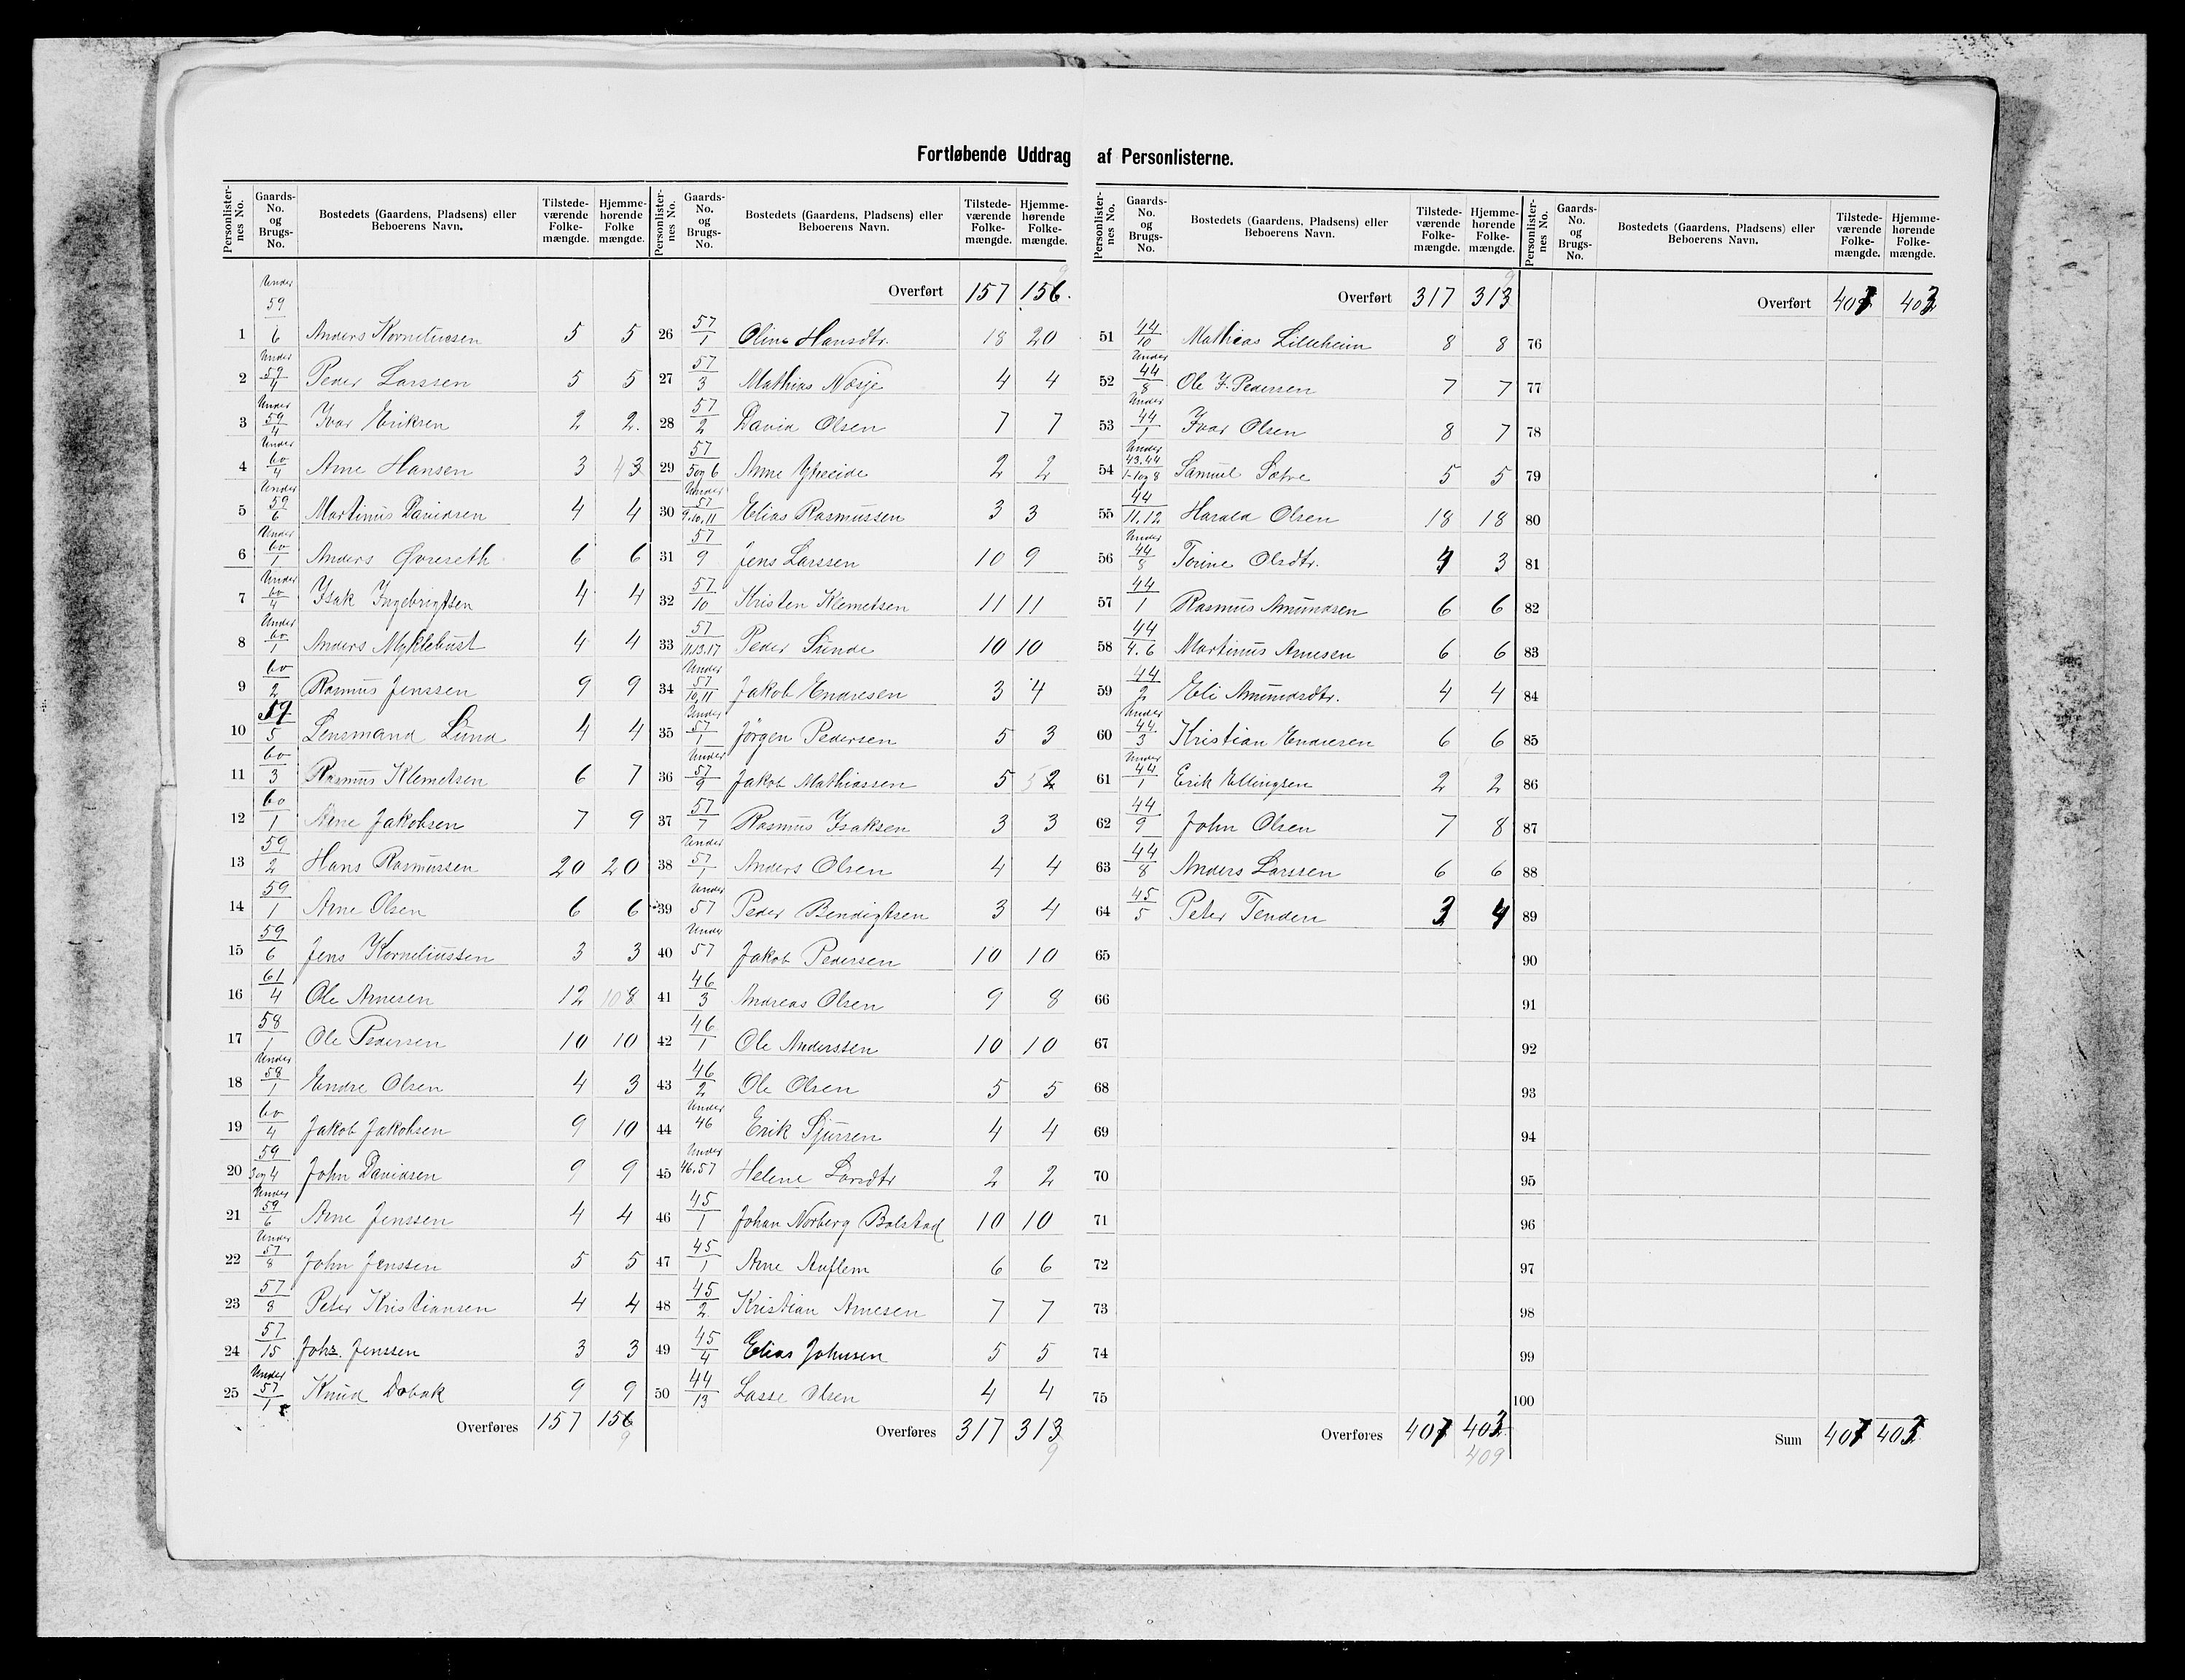 Fortløbende Uddrag af Personlisterne.
Personlisternes No. Gaards-No. og Brugs-No. Bostedets (Gaardens, Pladsens) eller Beboerens Navn. Tilstedeværende Folkemængde. Hjemmehørende Folkemængde.
1 Under 59/6 Anders Korneliussen 5 5
2 Under 59/4 Peder Larssen 5 5
3 Under 59/4 Ivar Eriksen 2 2.
4 Under 60/4 Arne Hansen 3 4 3
5 Under 59/6 Martinus Davidsen 4 4
6 Under 60/1 Anders Øvreseth 6 6
7 Under 60/4 Isak Ingebrigtsen 4 4
8 Under 60/1 Anders Myklebust 4 4
9 60/2 Rasmus Jenssen 9 9
10 59/5 Lensmand Lund 4 4
11 60/3 Rasmus Klemetsen 6 7
12 60/1 Arne Jakobsen 7 9
13 59/2 Hans Rasmussen 20 20
14 59/1 Arne Olsen 6 6
15 59/6 Jens Korneliussen 3 3
16 61/4 Ole Arnesen 12 10 8
17 58/1 Ole Pedersen 10 10
18 Under 58/1 Endre Olsen 4 3
19 60/4 Jakob Jakobsen 9 10
20 59/3og4 John Davidsen 9 9
21 Under 59/6 Arne Jenssen 4 4
22 Under 57/8 John Jenssen 5 5
23 57/8 Peter Kristiansen 4 4
24 57/15 Johs. Jenssen 3 3
25 Under 57/1 Knud Dobak 9 9
Overføres 157 156
9
Overført 157 156.
9
26 57/1 Oline Hansdtr. 18 20
27 57/3 Mathias Nosje 4 4
28 57/2 David Olsen 7 7
29 57/5og6 Anne Ytreeide 2 2
30 Under 57/9.10.11 Elias Rasmussen 3 3
31 57/9 Jens Larssen 10 9
32 57/10 Kristen Klemetsen 11 11
33 57/11.13.17 Peder Sunde 10 10
34 Under 57/10,11 Jakob Endresen 3 4
35 Under 57/1 Jørgen Pedersen 5 3
36 Under 57/9 Jakob Mathiassen 5 5 2
37 57/7 Rasmus Isaksen 3 3
38 Under 57/1 Anders Olsen 4 4
39 Under 57 Peder Bendigtsen 3 4
40 Under 57 Jakob Pedersen 10 10
41 46/3 Andreas Olsen 9 8
42 46/1 Ole Anderssen 10 10
43 46/2 Ole Olsen 5 5
44 Under 46 Erik Sjursen 4 4
45 Under 46.57 Helene Larsdtr 2 2
46 45/1 Johan Norberg Bolstad 10 10
47 45/1 Arne Auflem 6 6
48 45/2. Kristian Arnesen 7 7
49 45/4 Elias Johnsen 5 5
50 44/13 Lasse Olsen 4 4
Overføres 317 313
9
Personlisternes No. Gaards-No. og Brugs-No. Bostedets (Gaardens, Pladsens) eller Beboerens Navn. Tilstedeværende Folkemængde. Hjemmehørende Folkemængde.
Overført 317 313
9
51 44/10 Mathias Lilleheim 8 8
52 Under 44/8 Ole J. Pedersen 7 7
53 Under 44/1 Ivar Olsen 8 7
54 Under 43.44/1-1og8 Samuel Sætre 5 5
55 44/11.12 Harald Olsen 18 18
56 Under 44/8 Torine Olsdtr. 4 3
57 44/1 Rasmus Amundsen 6 6
58 44/4.6 Martinus Arnesen 6 6
59 44/2 Eli Amundsdtr. 4 4
60 Under 44/3 Kristian Endresen 6 6
61 Under 44/1 Erik Ellingsen 2 2
62 44/9 John Olsen 7 8
63 44/8 Anders Larssen 6 6
64 45/5 Peter Tenden 3 4
65
66
67
68
69
70
71
72
73
74
75
Overføres 407 403
409
Overført 407 403
76
77
78
79
80
81
82
83
84
85
86
87
88
89
90
91
92
93
94
95
96
97
98
99
100
Sum 407 403